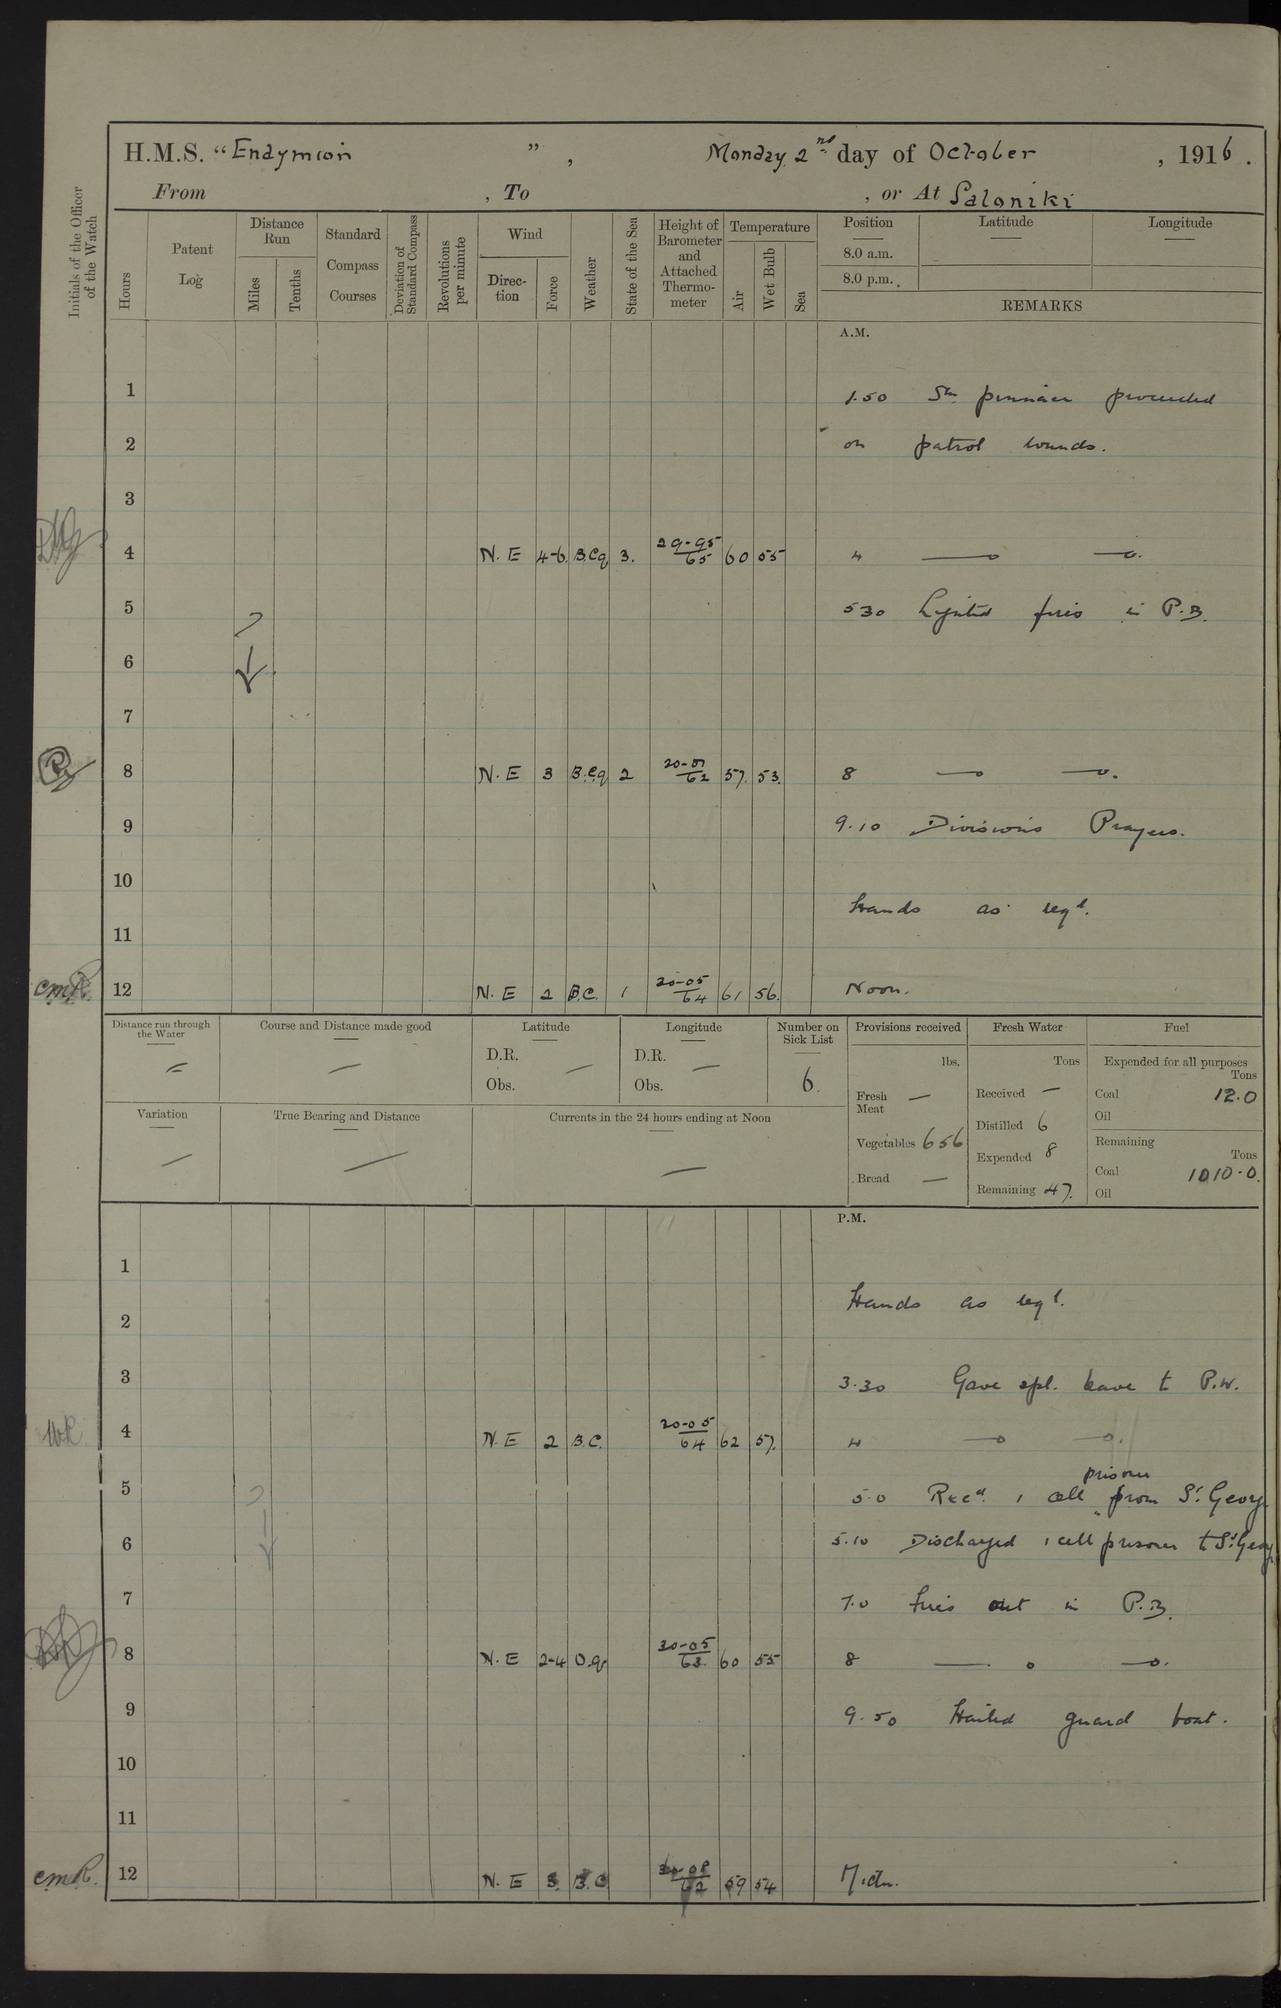 H.M.S. "Endymion", Monday 2nd day of October, 1916.
From , To , or At Saloniki
Initials of the Officer of the Watch
Hours
Patent Log
Distance Run
Miles
Tenths
Standard Compass Courses
Deviation of Standard Compass
Revolutions per minute
Wind
Direction
Force
Weather
State of the Sea
Height of Barometer and Attached Thermometer
Temperature
Air
Wet Bulb
Sea
Position Latitude Longitude
8.0 a.m.
8.0 p.m.
REMARKS
A.M.
1 1.50 Sm pinnace proceeded
2 on patrol rounds.
3
4 N.E 4-6 B.C.q 3. 29-95/65 60 55 4
5 5 30 Lighted fires in P.B.
6
7
8 N.E 3 B.C.q 2 57 53. 8
9 9.10 Divisions Prayers.
10
Hands as reqd.
11
C.M.R. 12 N.E 2 B.C. 1 30-05/64 61 56. Noon.
Distance run through the Water
Course and Distance made good
Latitude
D.R.
Obs.
Longitude
D.R.
Obs.
Number on Sick List
6
Variation
True Bearing and Distance
Currents in the 24 hours ending at Noon
Provisions received
lbs.
Fresh Meat —
Vegetables 656
Bread —
Fresh Water
Tons
Received —
Distilled 6
Expended 8
Remaining 47.
Fuel
Expended for all purposes
Tons
Coal 12.0
Oil
Remaining
Tons
Coal 1010.0.
Oil
P.M.
1
Hands as reqd.
2
3 3.30 Gave spl. leave to P.W.
4 N.E 2 B.C. 30-05/64 62 57. 4
5 5.0 Recd. 1 cell prisoner from St. George
6 5.10 Discharged 1 cell prisoner to St. George
7 7.0 Fires out in P.B.
8 N.E 2-4 O.q 30-05/63. 60 55 8
9 9.50 Hailed guard boat.
10
11
C.M.R. 12 N.E 3. B.C 30-08/62 59 54 Midn.